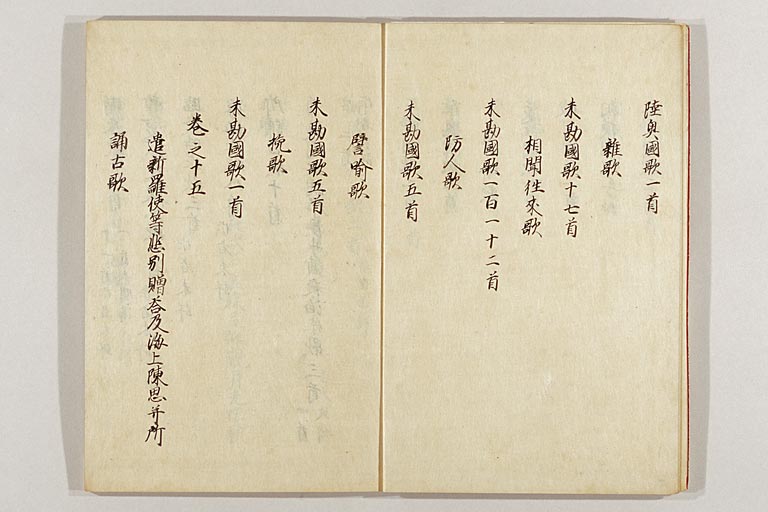 陸奥國歌一首
雜歌
未勘國歌十七首
相聞徃來歌
未勘國歌一百一十二首
防人歌
未勘國歌五首
譬喩歌
未勘國歌五首
挽歌
未勘國歌一首
卷之十五
遣新羅使等悲別贈荅及海上陳思并所
誦古歌